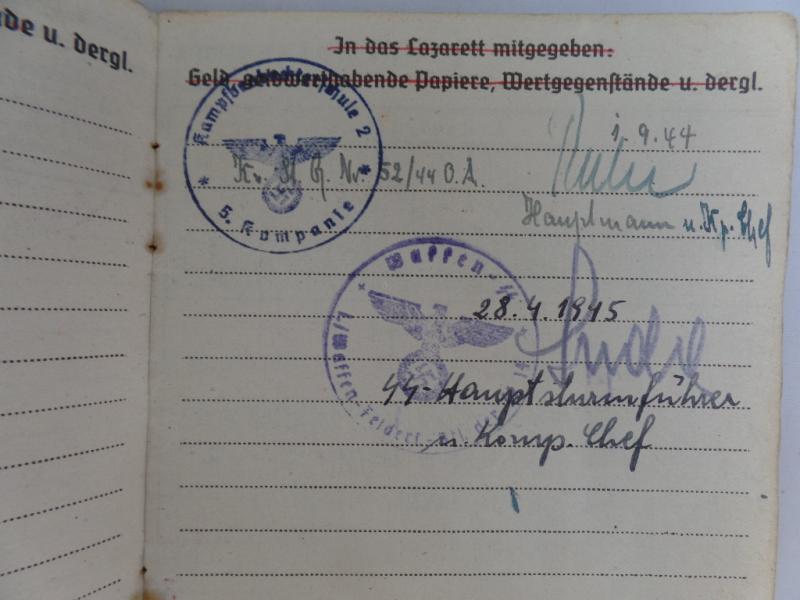 de u. dergl.
In das Lazarett mitgegeben:
Geld, geldwerthabende Papiere, Wertgegenstände u. dergl.
Kampfbeobachterschule 2
5. Kompanie
1. 9. 44
Kr. St. G. Nr. 52/44 O.A.
Hauptmann u. Kp. Chef
Waffen-SS
28.4.1945
SS-Hauptsturmführer
u. Komp. Chef